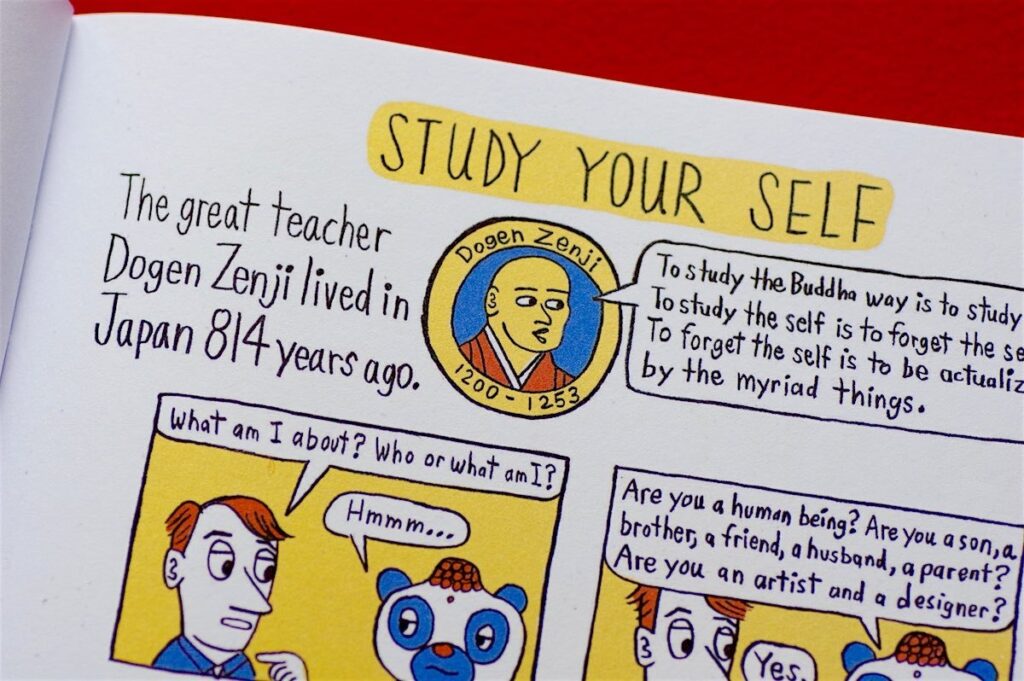 STUDY YOUR SELF
The great teacher
Dogen Zenji lived in
Japan 814 years ago.
Dogen Zenji
1200-1253
To study the Buddha way is to study
To study the self is to forget the
To forget the self is to be
by the myriad things.
What am I about? Who or what am I?
Hmmm...
Are you a human being? Are you a son, a
brother, a friend, a husband, a parent?
Are you an artist and a designer?
Yes.